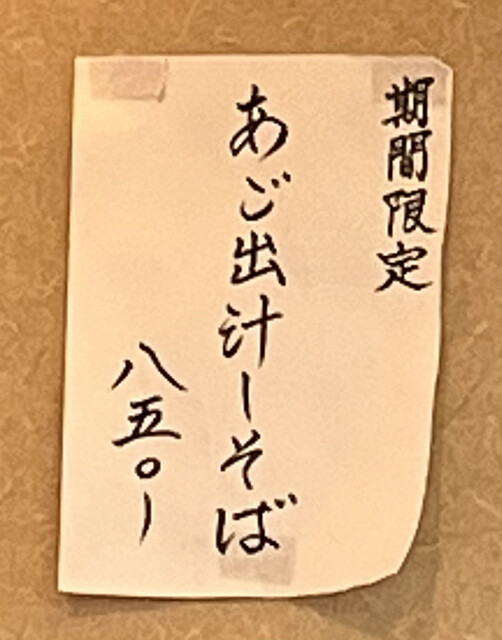 期間限定
あご出汁ーそば
八五〇ー